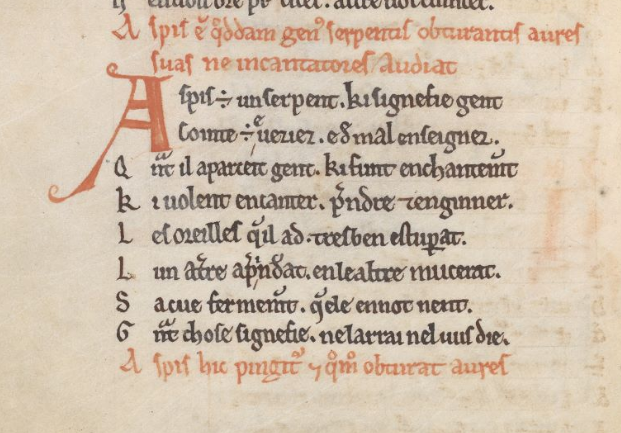 Aspis ē q̊ddam genꝰ serpentis obturantis aures
suas ne incantatores audiat
Aspis ÷ un serpent. ki signefie gent
Cointe ÷ ueziez. e đ mal enseignez.
Qn̄t il aparceit gent. ki funt enchantem̄t
Ki uolent encanter. p̄ndre ⁊ enginner.
Les oreilles q̄l ad. tresben estuꝑat.
Lun a t̄re ap̄nđat. en le altre mucerat.
Sa cue ferm em̄t. q̄le en not nent.
Gn̄t chose signefie. ne larrai nel uus die.
Aspis hic pingitᷣ ⁊ q̊m̊ obturat aures